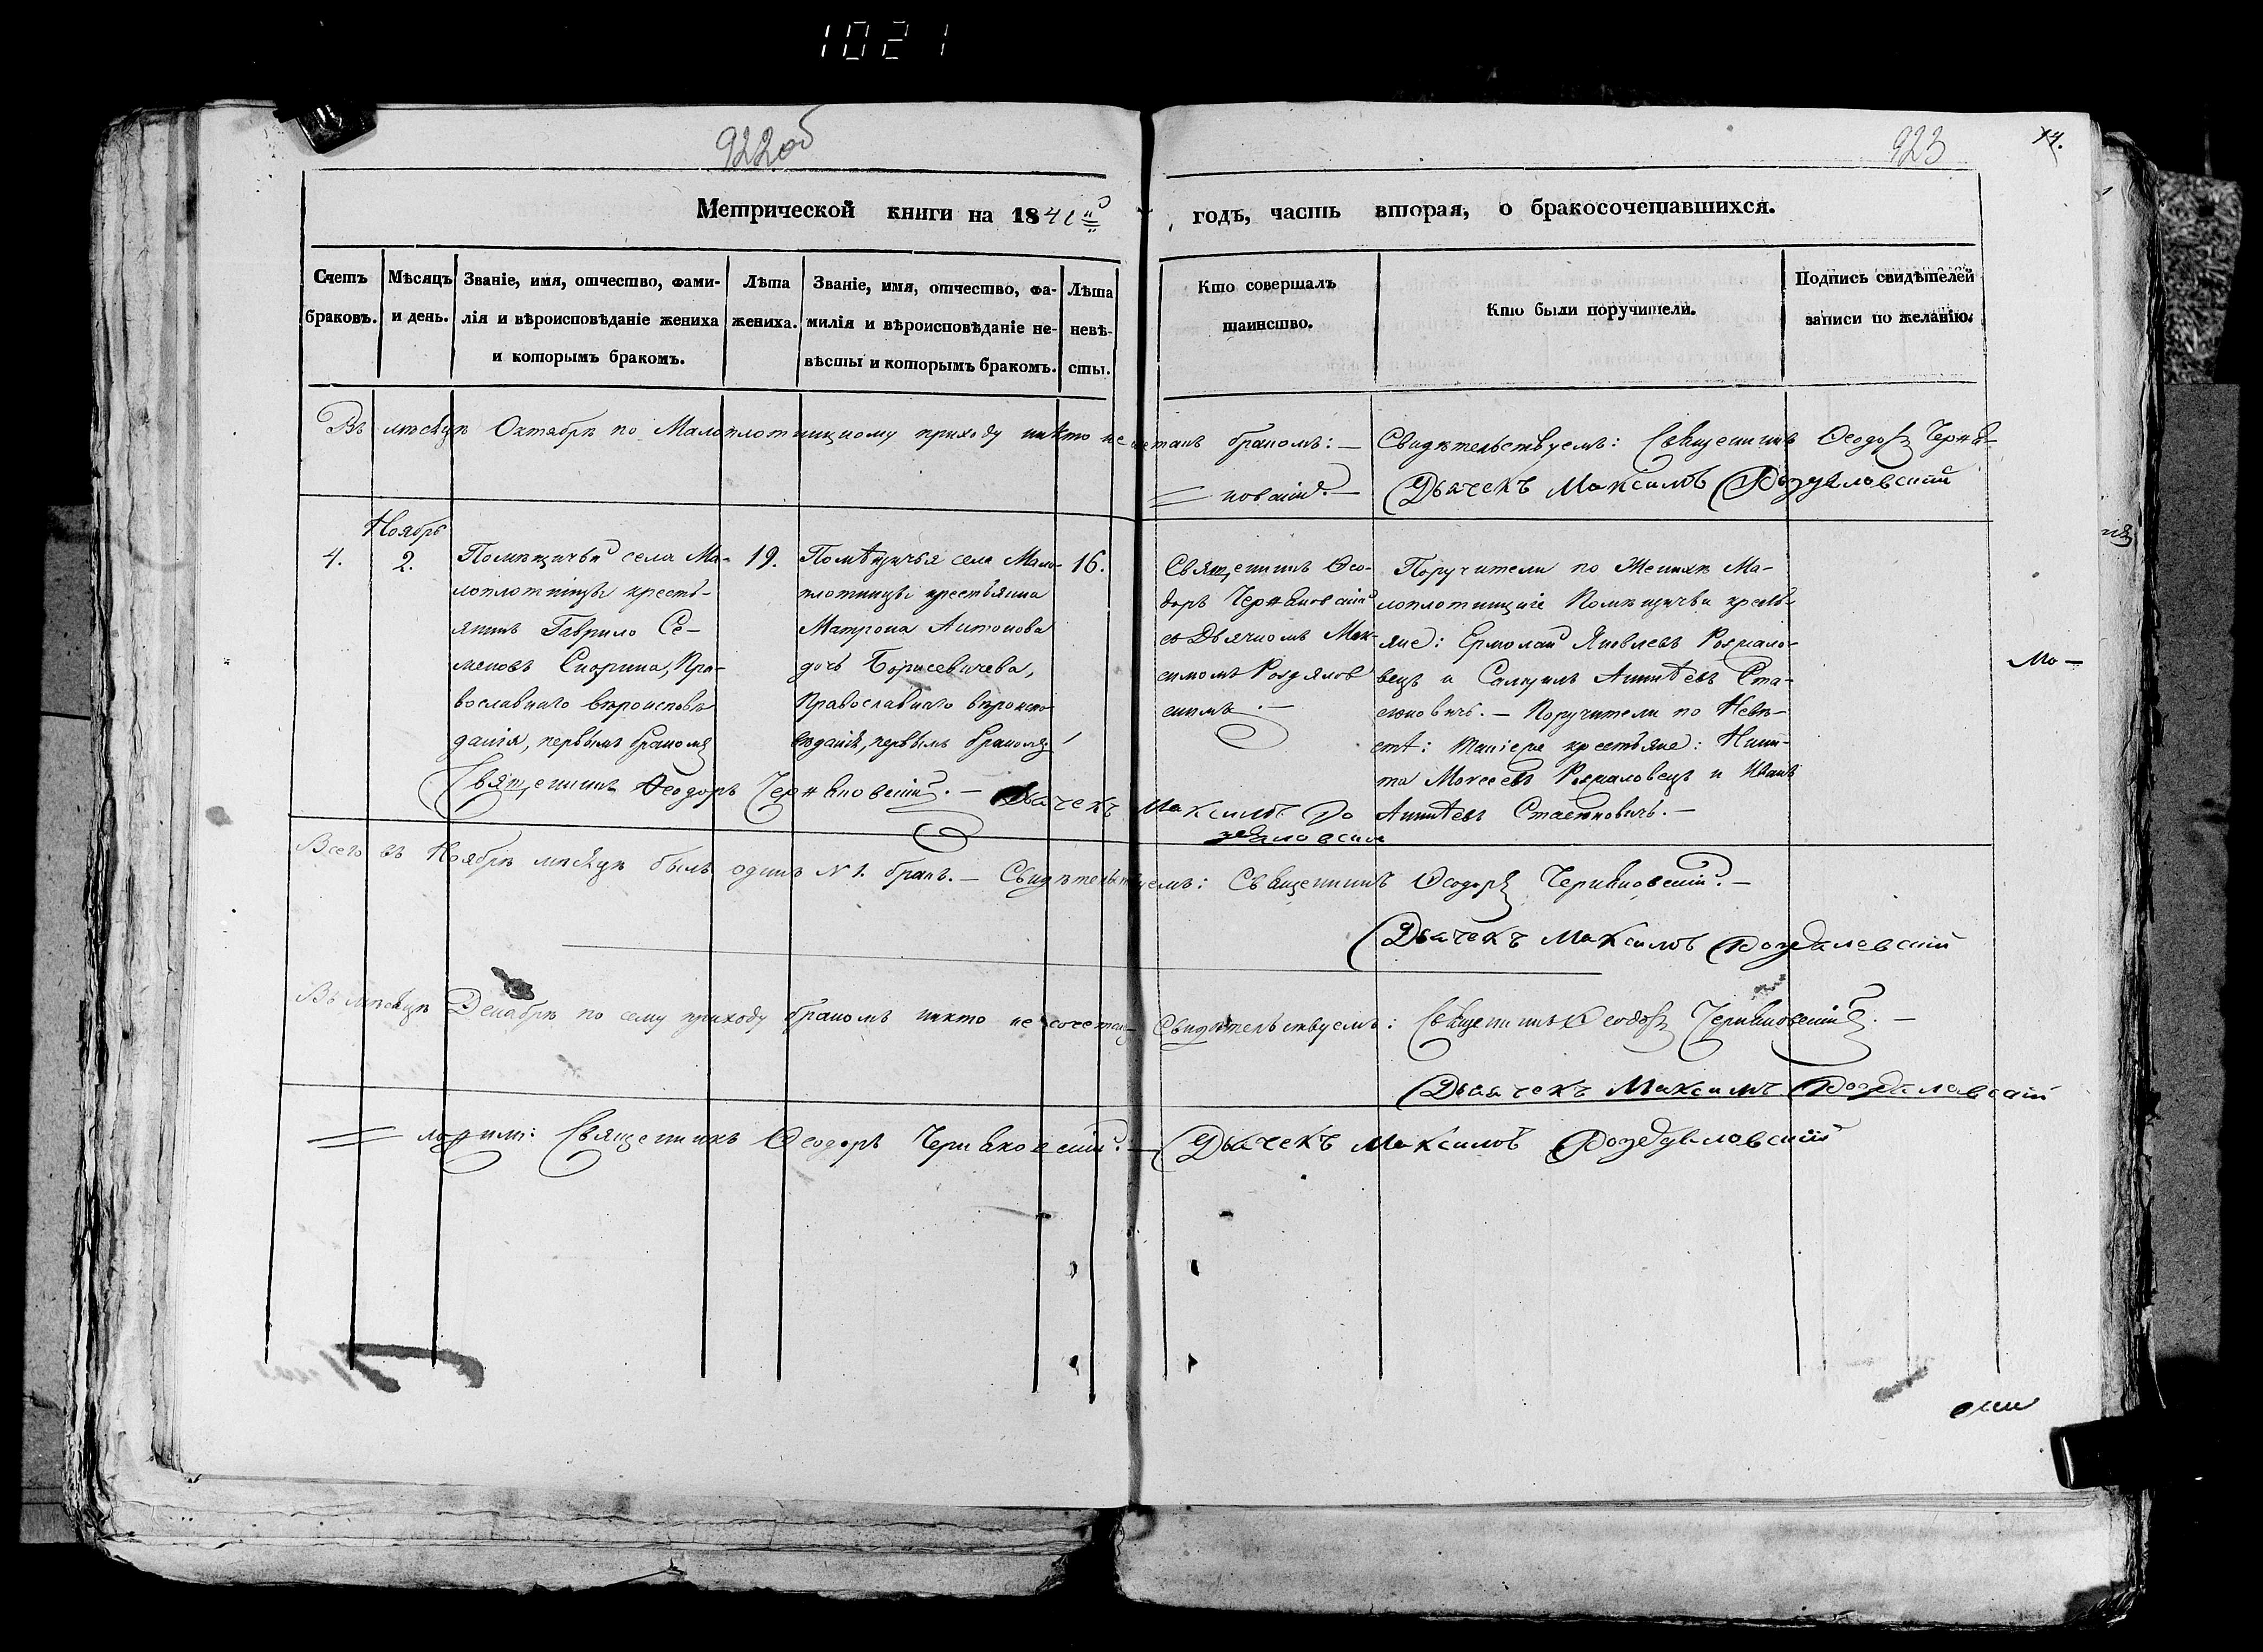 1021
922об
923
14.
Метрической книги на 1841й годъ, часть вторая, о бракосочетавшихся.
Счетъ браковъ.
Мѣсяцъ и день.
Званіе, имя, отчество, фами-
лія и вѣроисповѣданіе жениха
и которымъ бракомъ.
Лѣта
жениха.
Званіе, имя, отчество, фа-
милія и вѣроисповѣданіе не-
вѣсты и которымъ бракомъ.
Лѣта
невѣ-
сты.
Кто совершалъ
таинство.
Кто были поручители.
Подпись свидѣтелей
записи по желанію.
Въ мѣсяцѣ Октябрѣ по Малоплотницкому приходу никто не сочетанъ бракомъ: — Свидѣтельствуемъ: Священникъ Ѳеодоръ Черня-
ковскій. — Дьячекъ Максимъ
Ноябрь
4.
2.
Помѣщичьи села Ма-
лоплотницы кресть-
янинъ Гаврило Се-
меновъ Скорина, Пра-
вославнаго вѣроисповѣ
данія, первымъ бракомъ
19.
Помѣщичья села Мало-
плотницы крестьянина
Матрона Антонова
дочь Борисевичева,
Православнаго вѣроиспо
вѣданія, первымъ бракомъ
16.
Священникъ Ѳео-
доръ Черняковскій
съ Дьячкомъ Мак-
симомъ Роздялов
скимъ. —
Поручители по Женихѣ Ма-
лоплотницкіе Помѣщичьи кресть-
яне: Ермолай Яковлевъ
вецъ и Самуилъ Ста-
сюковичъ. — Поручители по Невѣ-
стѣ: крестьяне: Ники-
та Моисеевъ и Иванъ
Стасюковичъ. —
Священникъ Ѳеодоръ Черняковскій. — Дьячекъ Максимъ Ро
здяловский
Всего въ Ноябрѣ мѣсяцѣ былъ одинъ N 1. бракъ. — Свидѣтельствуемъ: Священникъ Ѳеодоръ Черняковскій. —
Дьячекъ Максимъ Роздяловский
Въ мѣсяцѣ Декабрѣ по сему приходу бракомъ никто не сочетанъ Свидѣтельствуемъ: Священникъ Ѳеодоръ Черняковскій. —
Дьячекъ Максимъ Роздяловский
ложимъ: Священникъ Ѳеодоръ Черняковскій. — Дьячекъ Максимъ Роздяловский
Мо —